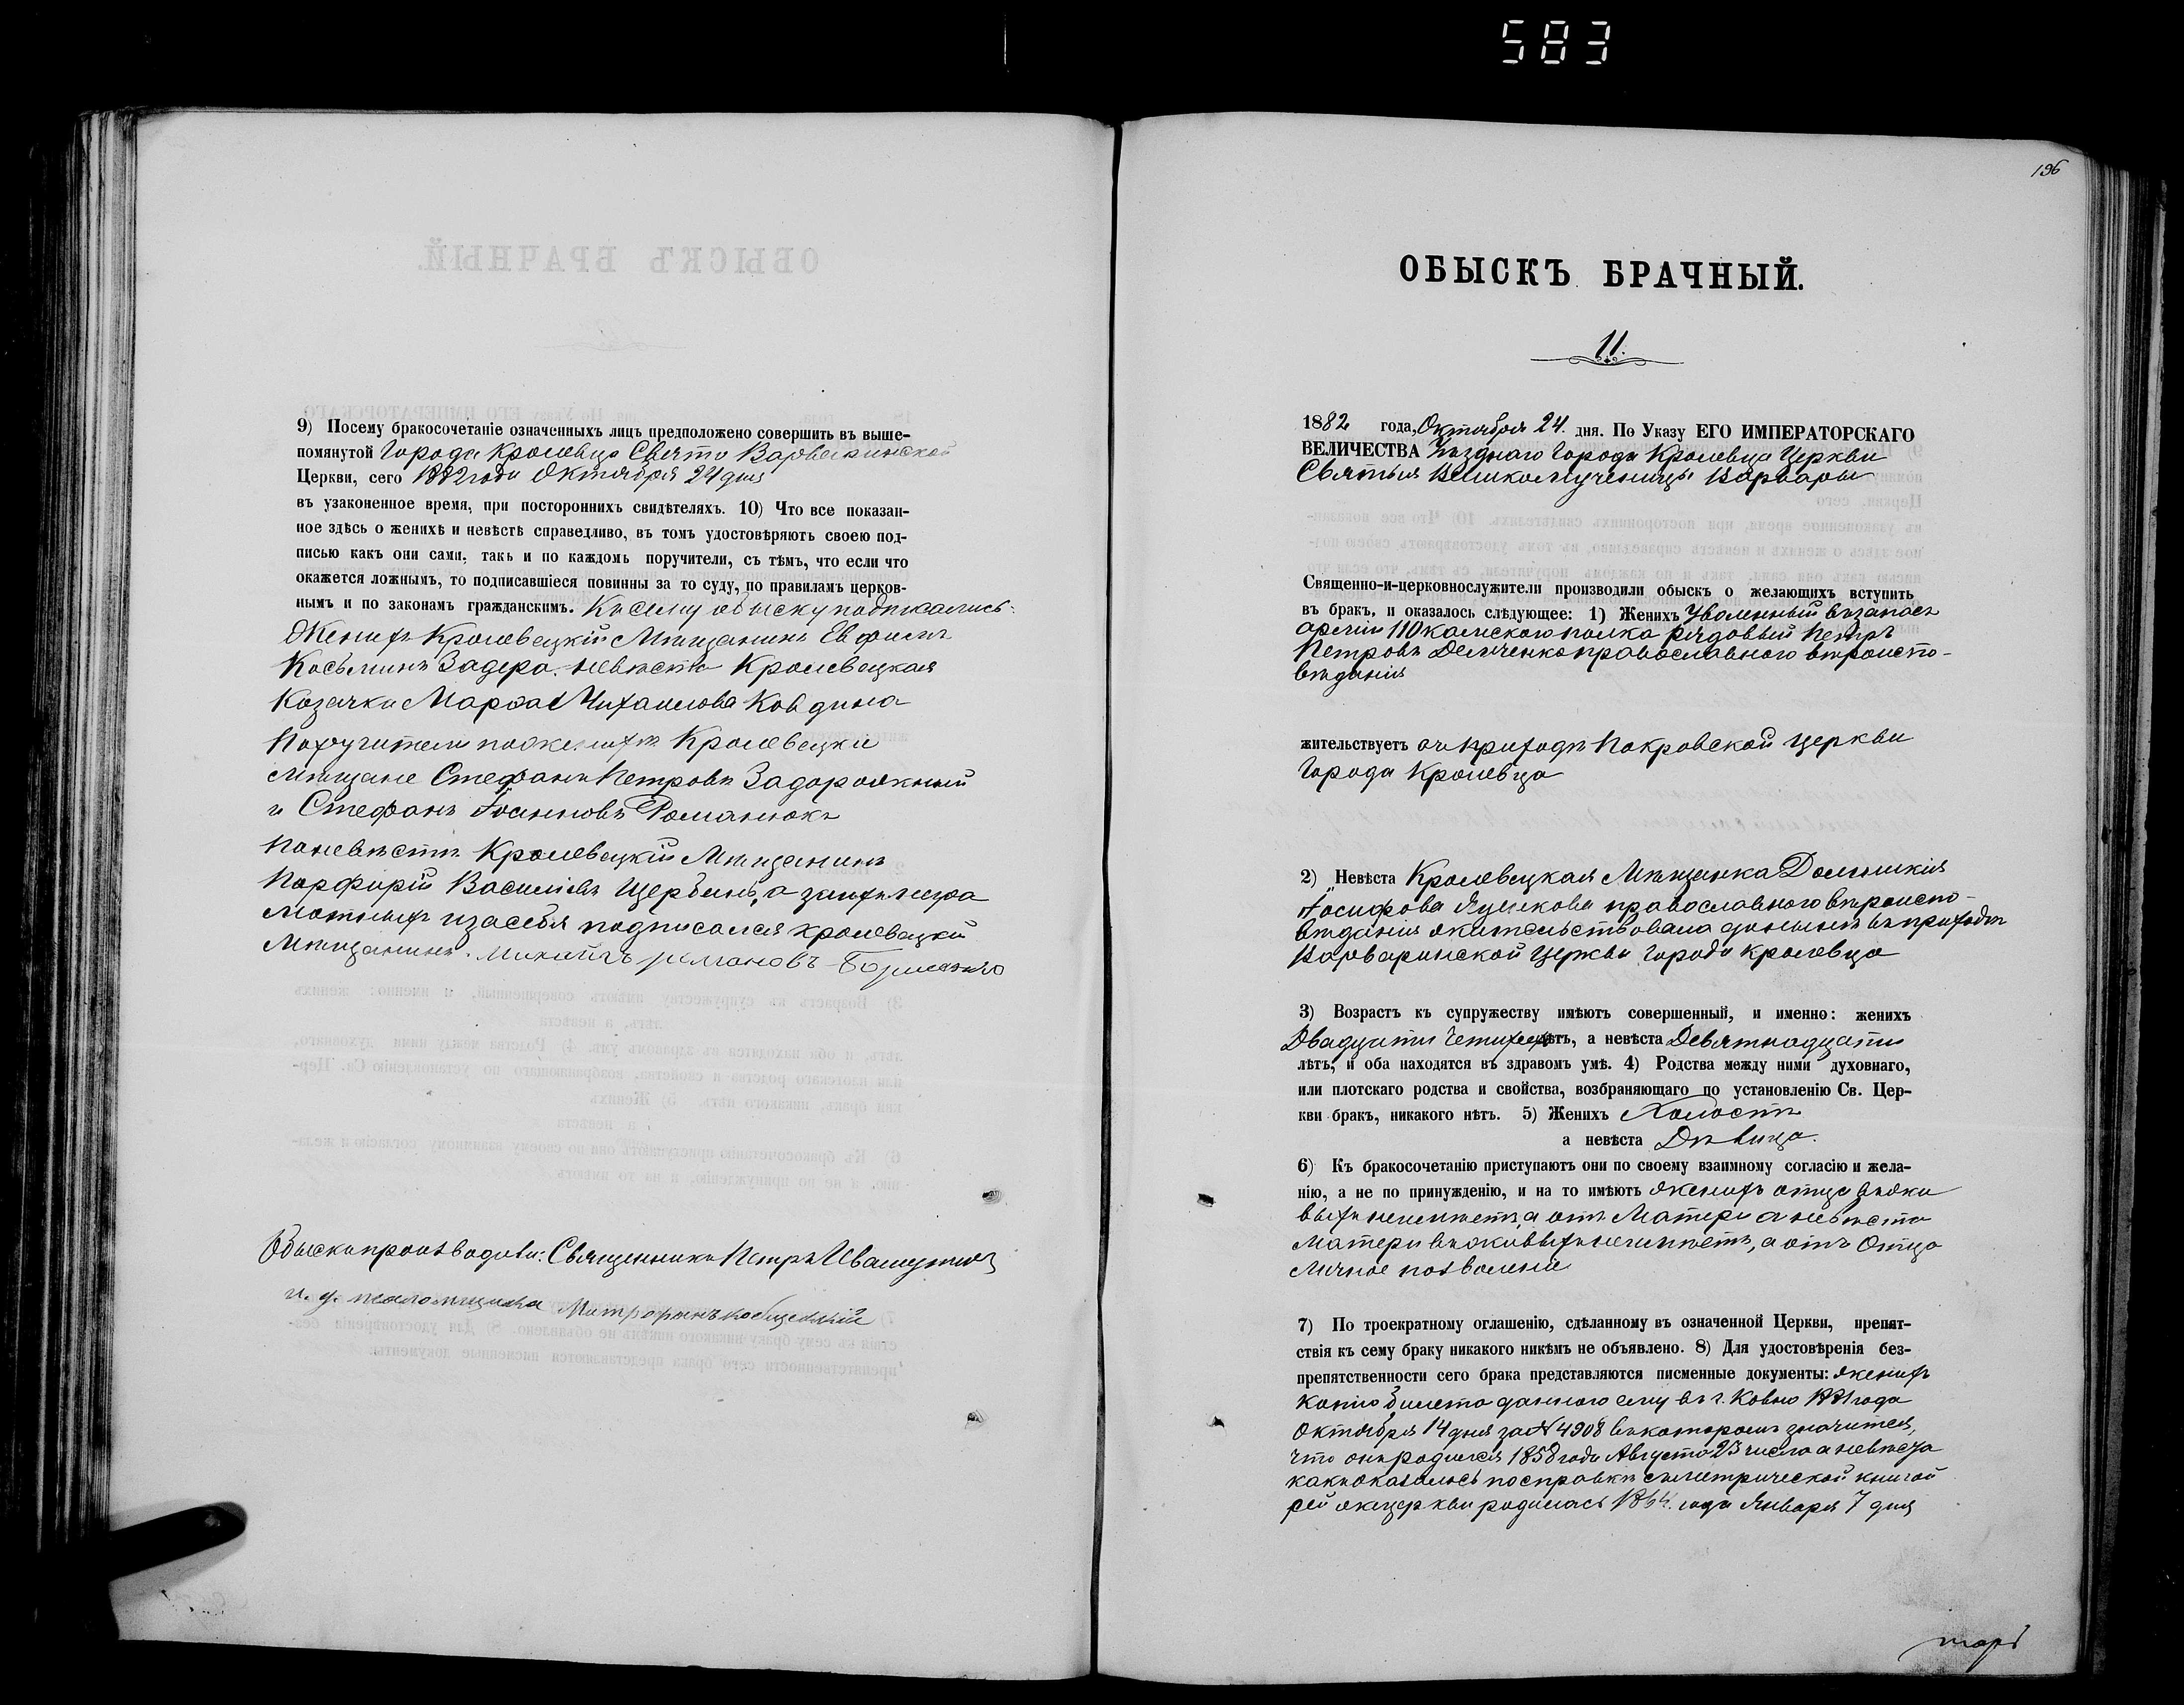 583
9) Посему бракосочетаніе означенныхъ лицъ предположено совершить въ выше-
помянутой Города Кролевца Свято Варваринской
Церкви, сего 1882 года Октября 24 дня
въ узаконенное время, при постороннихъ свидѣтеляхъ. 10) Что все показан-
ное здѣсь о женихѣ и невѣстѣ справедливо, въ томъ удостовѣряютъ своею под-
писью какъ они сами, такъ и по каждомъ поручители, съ тѣмъ, что если что
окажется ложнымъ, то подписавшіеся повинны за то суду, по правиламъ церков-
нымъ и по законамъ гражданскимъ. Къ сему обыску подписались:
Женихъ Кролевецкій Мѣщанинъ Евфимъ
Косьминъ Задера. невѣста Кролевецкая
Козачка Марѳа Михаилова Ковдина
Поручители по женихѣ Кролевецкіе
мѣщане Стефанъ Петровъ Задорожный
и Стефанъ Іоанновъ Романюкъ
по невѣстѣ Кролевецкій Мѣщанинъ
Порфирій Васильевъ Щербина, а за ихъ неграмотныхъ
и за себя подписался кролевецкій
Мѣщанинъ. Михаилъ Романовъ
Обыскъ производили: Священникъ Петръ
и. д. псаломщика Митрофанъ
136
ОБЫСКЪ БРАЧНЫЙ.
11.
1882 года, Октября 24 дня. По Указу ЕГО ИМПЕРАТОРСКАГО
ВЕЛИЧЕСТВА Уѣзднаго Города Кролевца Церкви
Святыя Великомученицы Варвары
Священно-и-церковнослужители производили обыскъ о желающихъ вступить
въ бракъ, и оказалось слѣдующее: 1) Женихъ Уволенный въ запасъ
арміи 110 камского полка рядовый Петръ
Петровъ Демченко православного вѣроиспо-
вѣданія
жительствуетъ въ приходѣ Покровской церкви
Города Кролевца
2) Невѣста Кролевецкая Мѣщанка Домникія
Іосифова Яцикова православного вѣроиспо-
вѣданія жительствовала донынѣ въ приходѣ
Варваринской Церкви города Кролевца
3) Возрастъ къ супружеству имѣютъ совершенный, и именно: женихъ
Двадцати четырехъ лѣтъ, а невѣста Девятнадцати
лѣтъ, и оба находятся въ здравомъ умѣ. 4) Родства между ними духовнаго,
или плотскаго родства и свойства, возбраняющаго по установленію Св. Цер-
кви бракъ, никакого нѣтъ. 5) Женихъ Холостъ
а невѣста Дѣвица.
6) Къ бракосочетанію приступаютъ они по своему взаимному согласію и жела-
нію, а не по принужденію, и на то имѣютъ женихъ отца въ жи
выхъ неимѣетъ, а отъ Матери а невѣста
Матери въ живыхъ неимѣетъ, а отъ Отца
личное позволеніе
7) По троекратному оглашенію, сдѣланному въ означенной Церкви, препят-
ствія къ сему браку никакого никѣмъ не объявлено. 8) Для удостовѣренія без-
препятственности сего брака представляются писменные документы: женихъ
копію билета данного ему въ г. Ковно 1881 года
Октября 14 дня за № 4908 въ которомъ значится,
что онъ родился 1858 года Августа 23 числа а невѣста
какъ оказалось по справкѣ съ метрической книгой
сей же церкви родилась 1864 года Января 7 дня